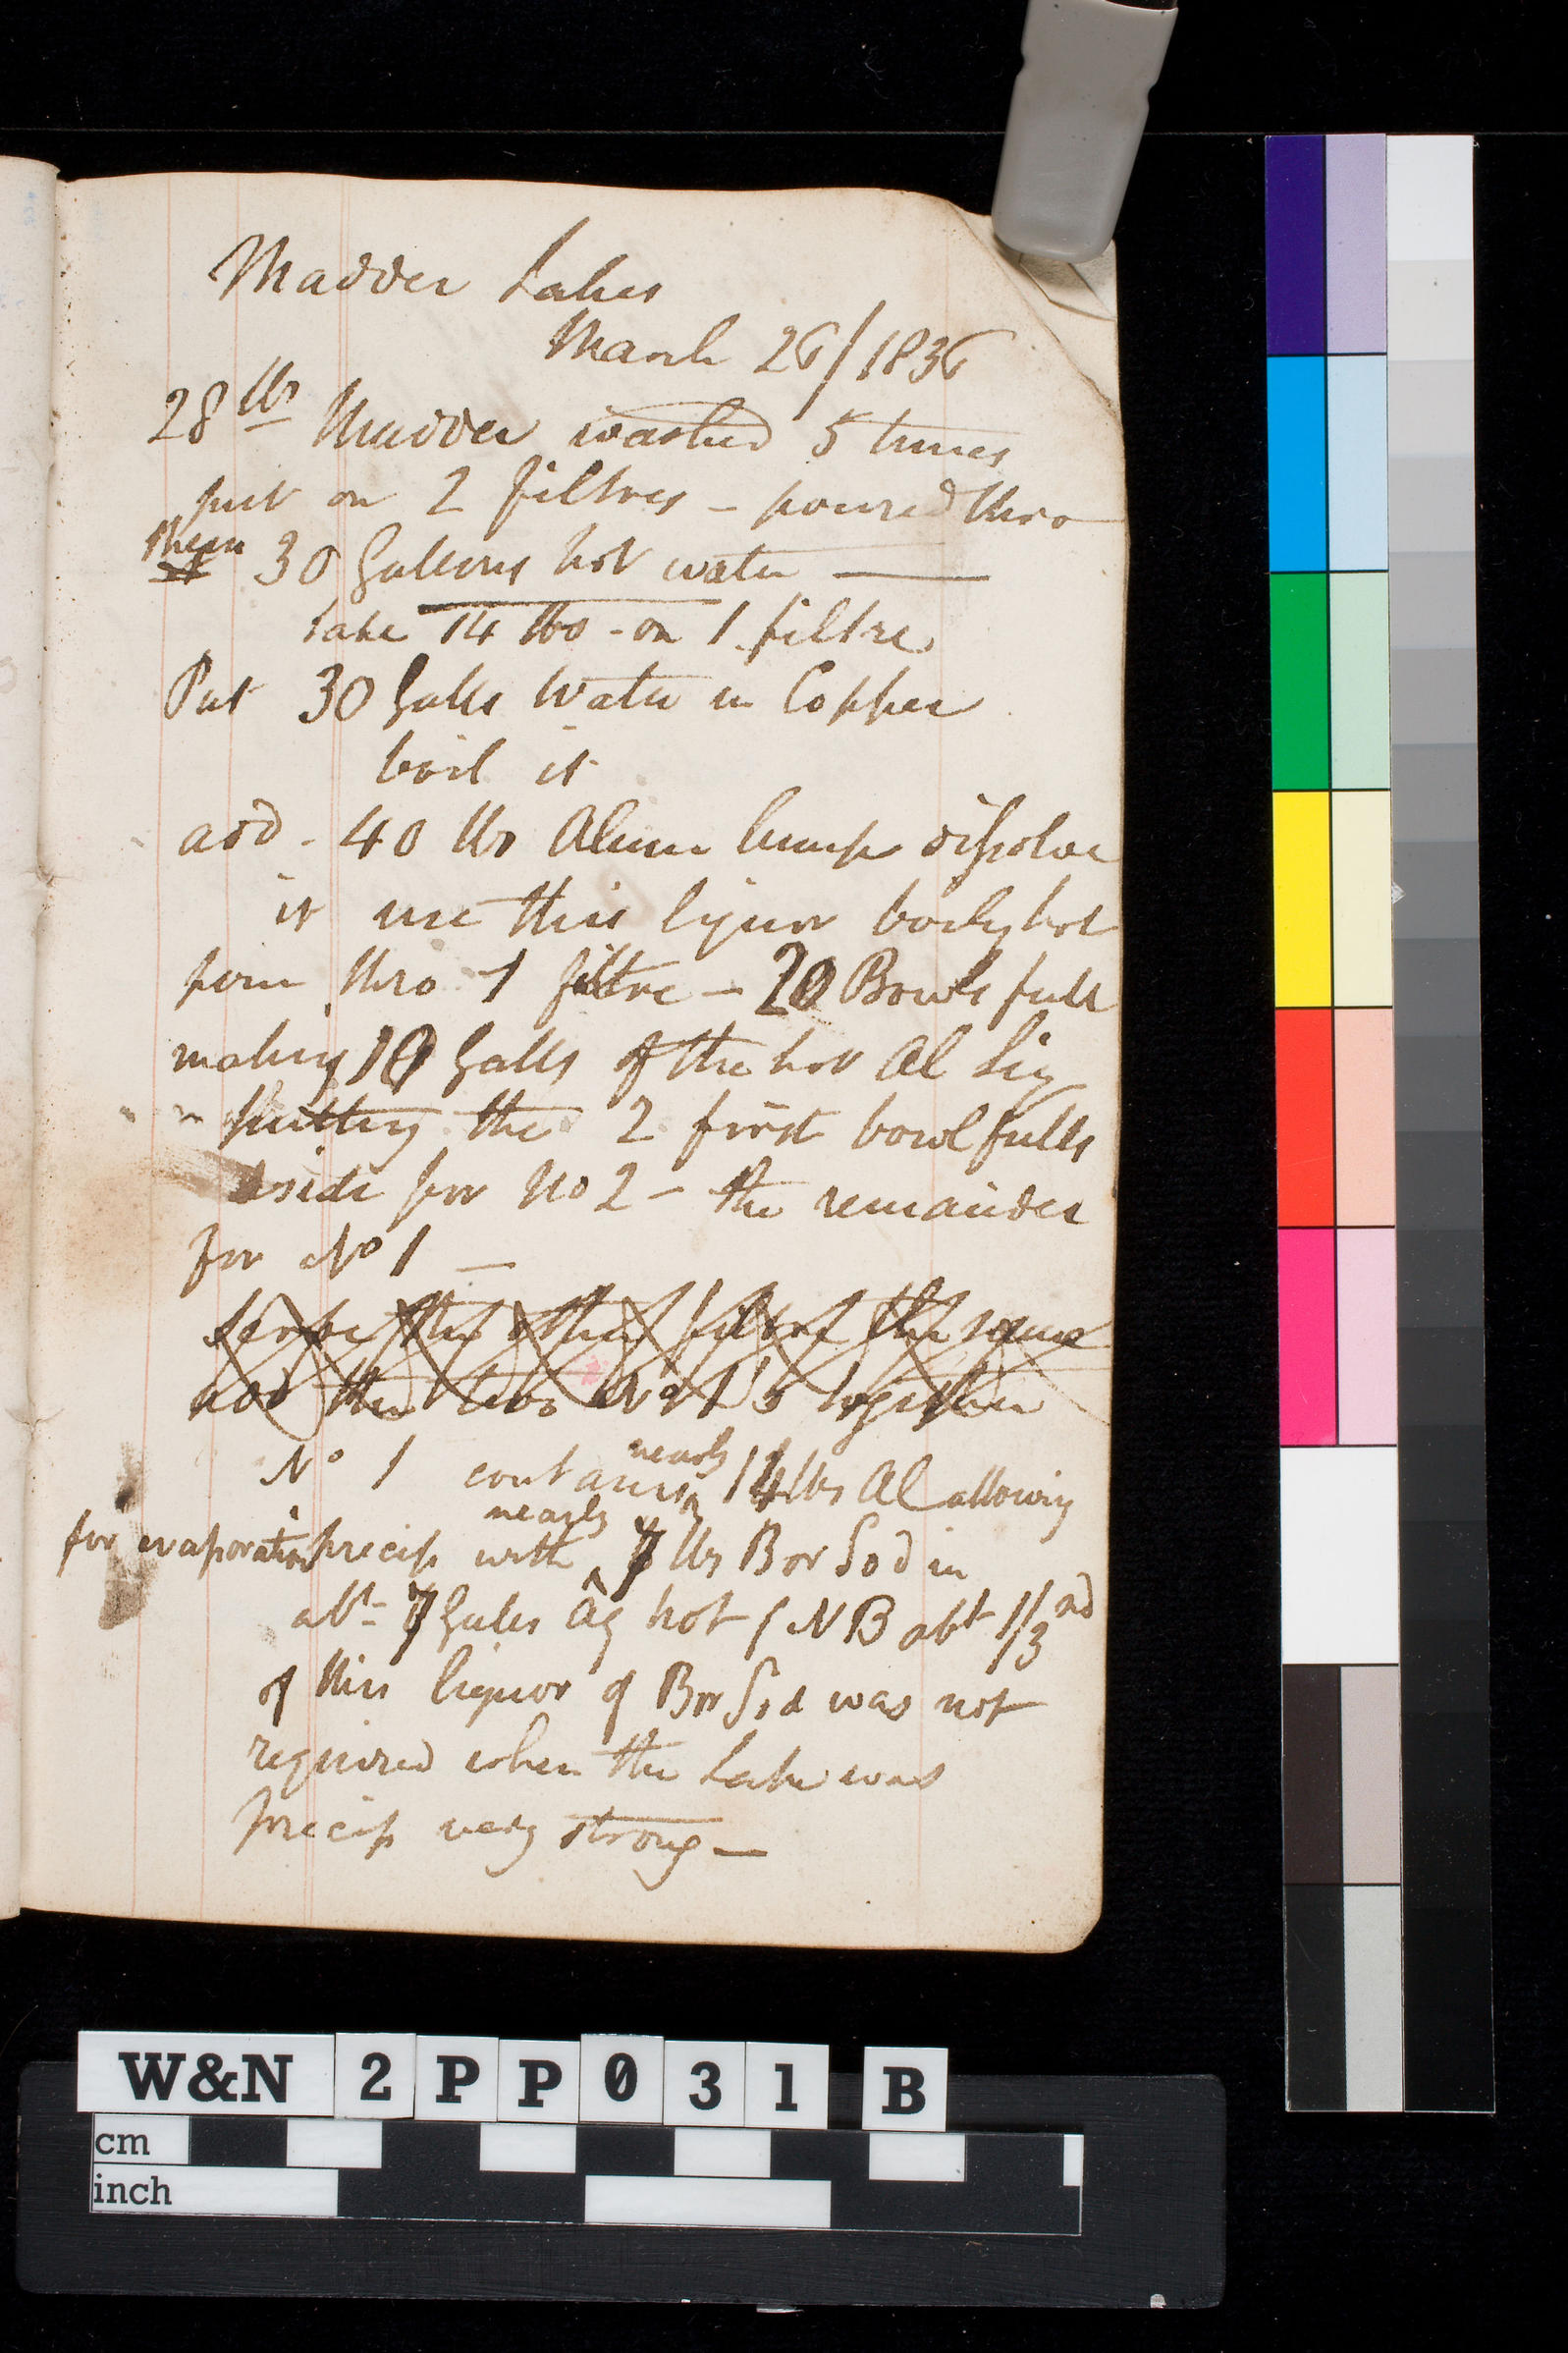 Madder Lakes
March 26/1836
28 lbs Madder washed 5 times
put on 2 filtres - poured thro
them 30 Gallons hot water —
take 14 lbs - on 1 filtre
Put 30 Galls Water in Copper
boil it
add - 40 lbs Alum lump dissolve
it use this liquor boilg hot
pour thro 1 filtre - 20 Bowls full
making 10 Galls of the hot Al Liq
putting the 2 first bowl fulls
aside for No 2 - the remainder
for No 1 —
Serve the other filtre the same
add the two No 1's together
nearly
No 1 contains 14 lbs Al allowing
nearly
for evaporation precip with 7 lbs Bor Sod in
abt 7 Galls Aq hot (NB abt 1/3rd
of this liquor of Bor Sod was not
required when the Lake was
precip very strong —
W&N 2PP031 B
cm
inch